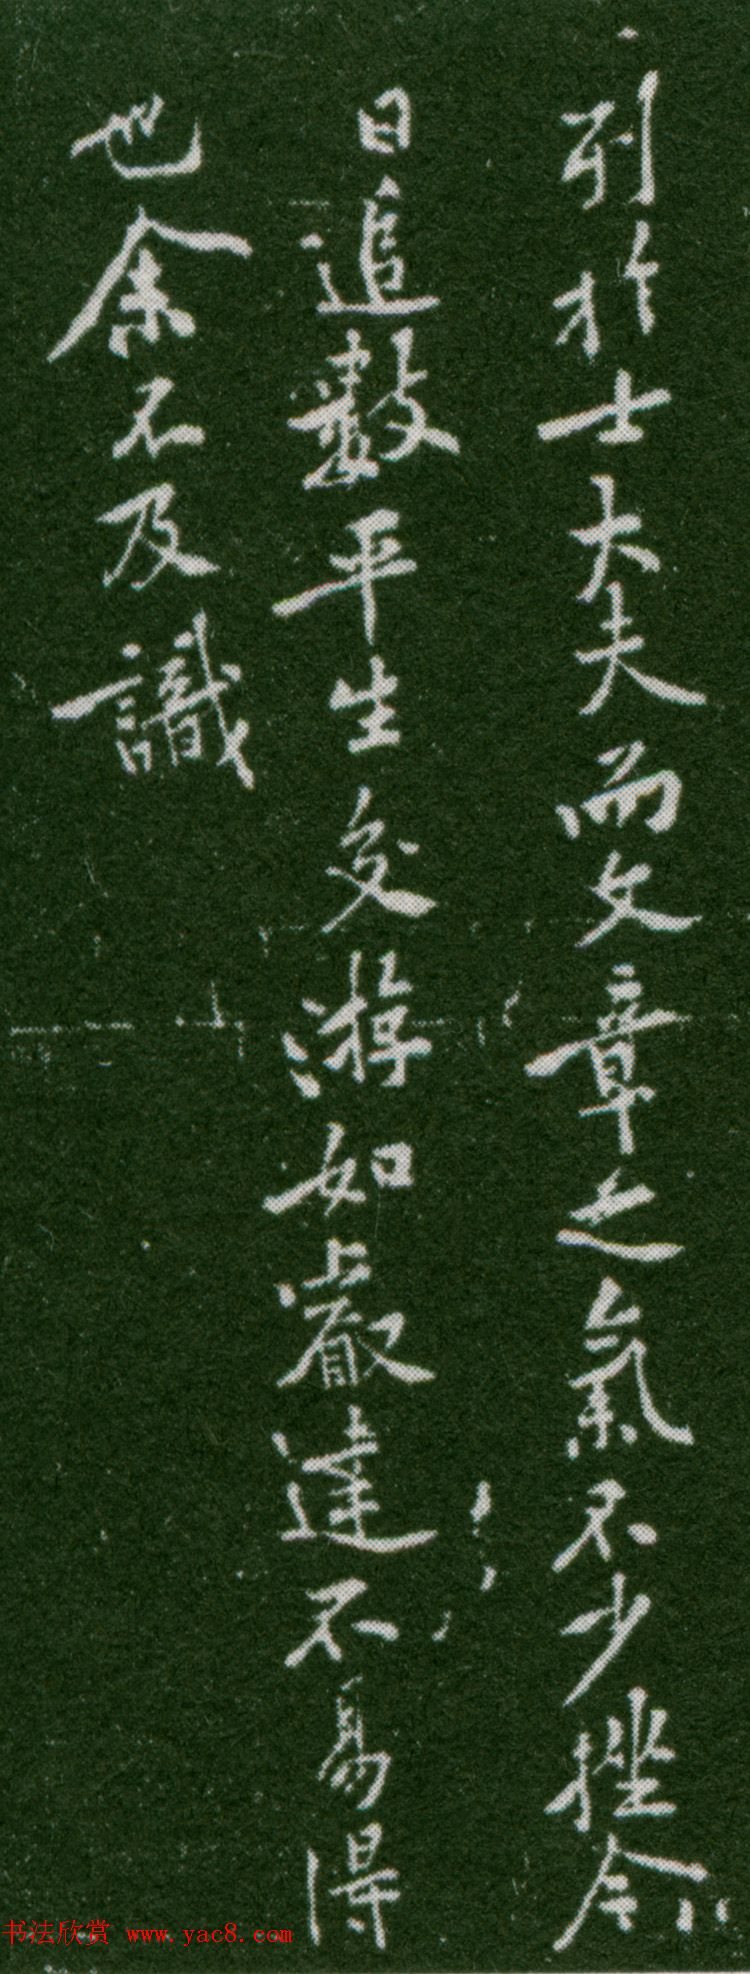 引於士大夫而文章之氣不少挫今
日追數平生交游如叡達不易得
也余不及識
书法欣赏 www.yac8.com